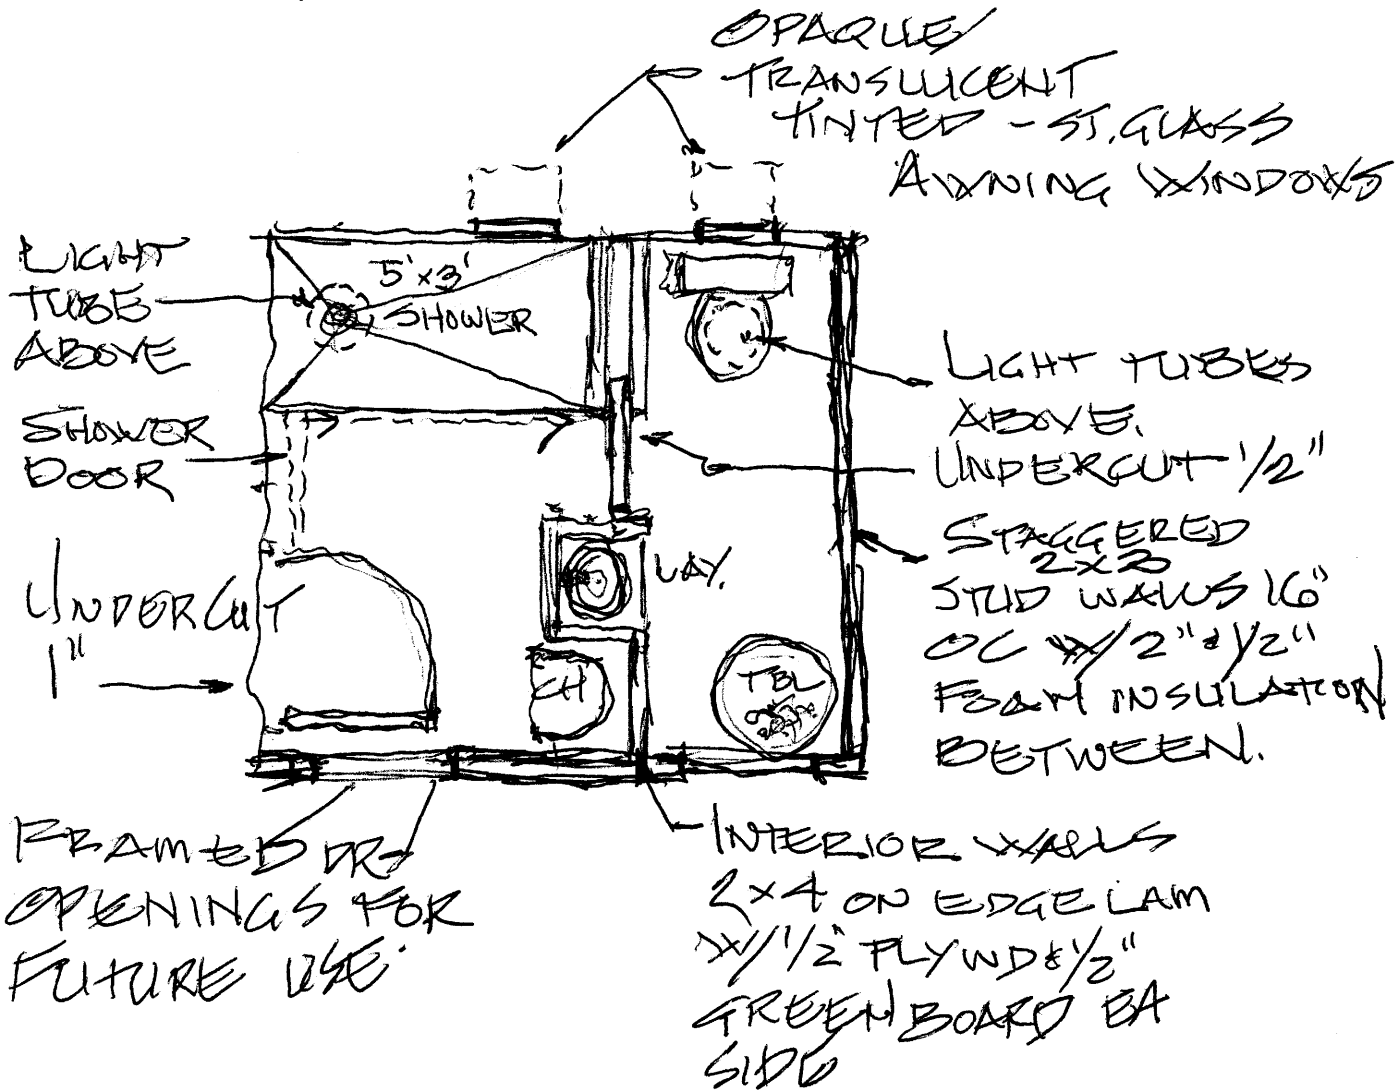 OPAQUE/
TRANSLUCENT
TINTED - ST. GLASS
AWNING WINDOWS
LIGHT
TUBE
ABOVE
5'x3'
SHOWER
LIGHT TUBES
ABOVE.
SHOWER
DOOR
UNDERCUT 1/2"
STAGGERED
2x3
STUD WALLS 16"
OC W/ 2" & 1/2"
FOAM INSULATION
BETWEEN.
LAV.
UNDERCUT
1"
CH
TBL
FRAMED DR-
OPENINGS FOR
FUTURE USE.
INTERIOR WALLS
2x4 ON EDGE LAM
W/ 1/2" PLYWD & 1/2"
GREEN BOARD EA
SIDE